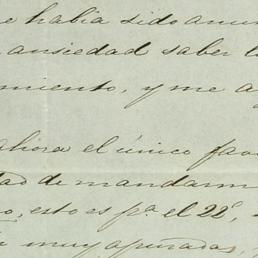 e habia sido anun
ansiedad saber l
miento, y me a
ahora el único favo
dad de mandarm
o, esto es pª el 22,
muy apuradas,